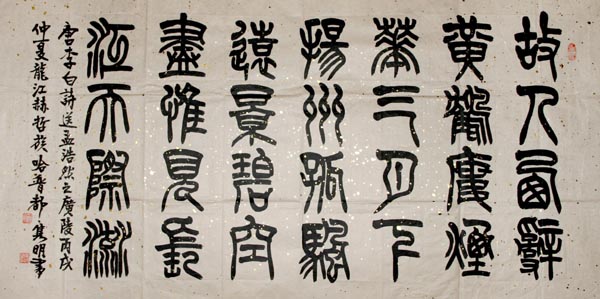 故人西辭
黃鶴廔煙
華三月下
揚州孤颿
遠景碧空
盡惟見長
江天際流
唐李白詩送孟浩然之廣陵丙戌
仲夏龍江赫哲族哈普都隽明書